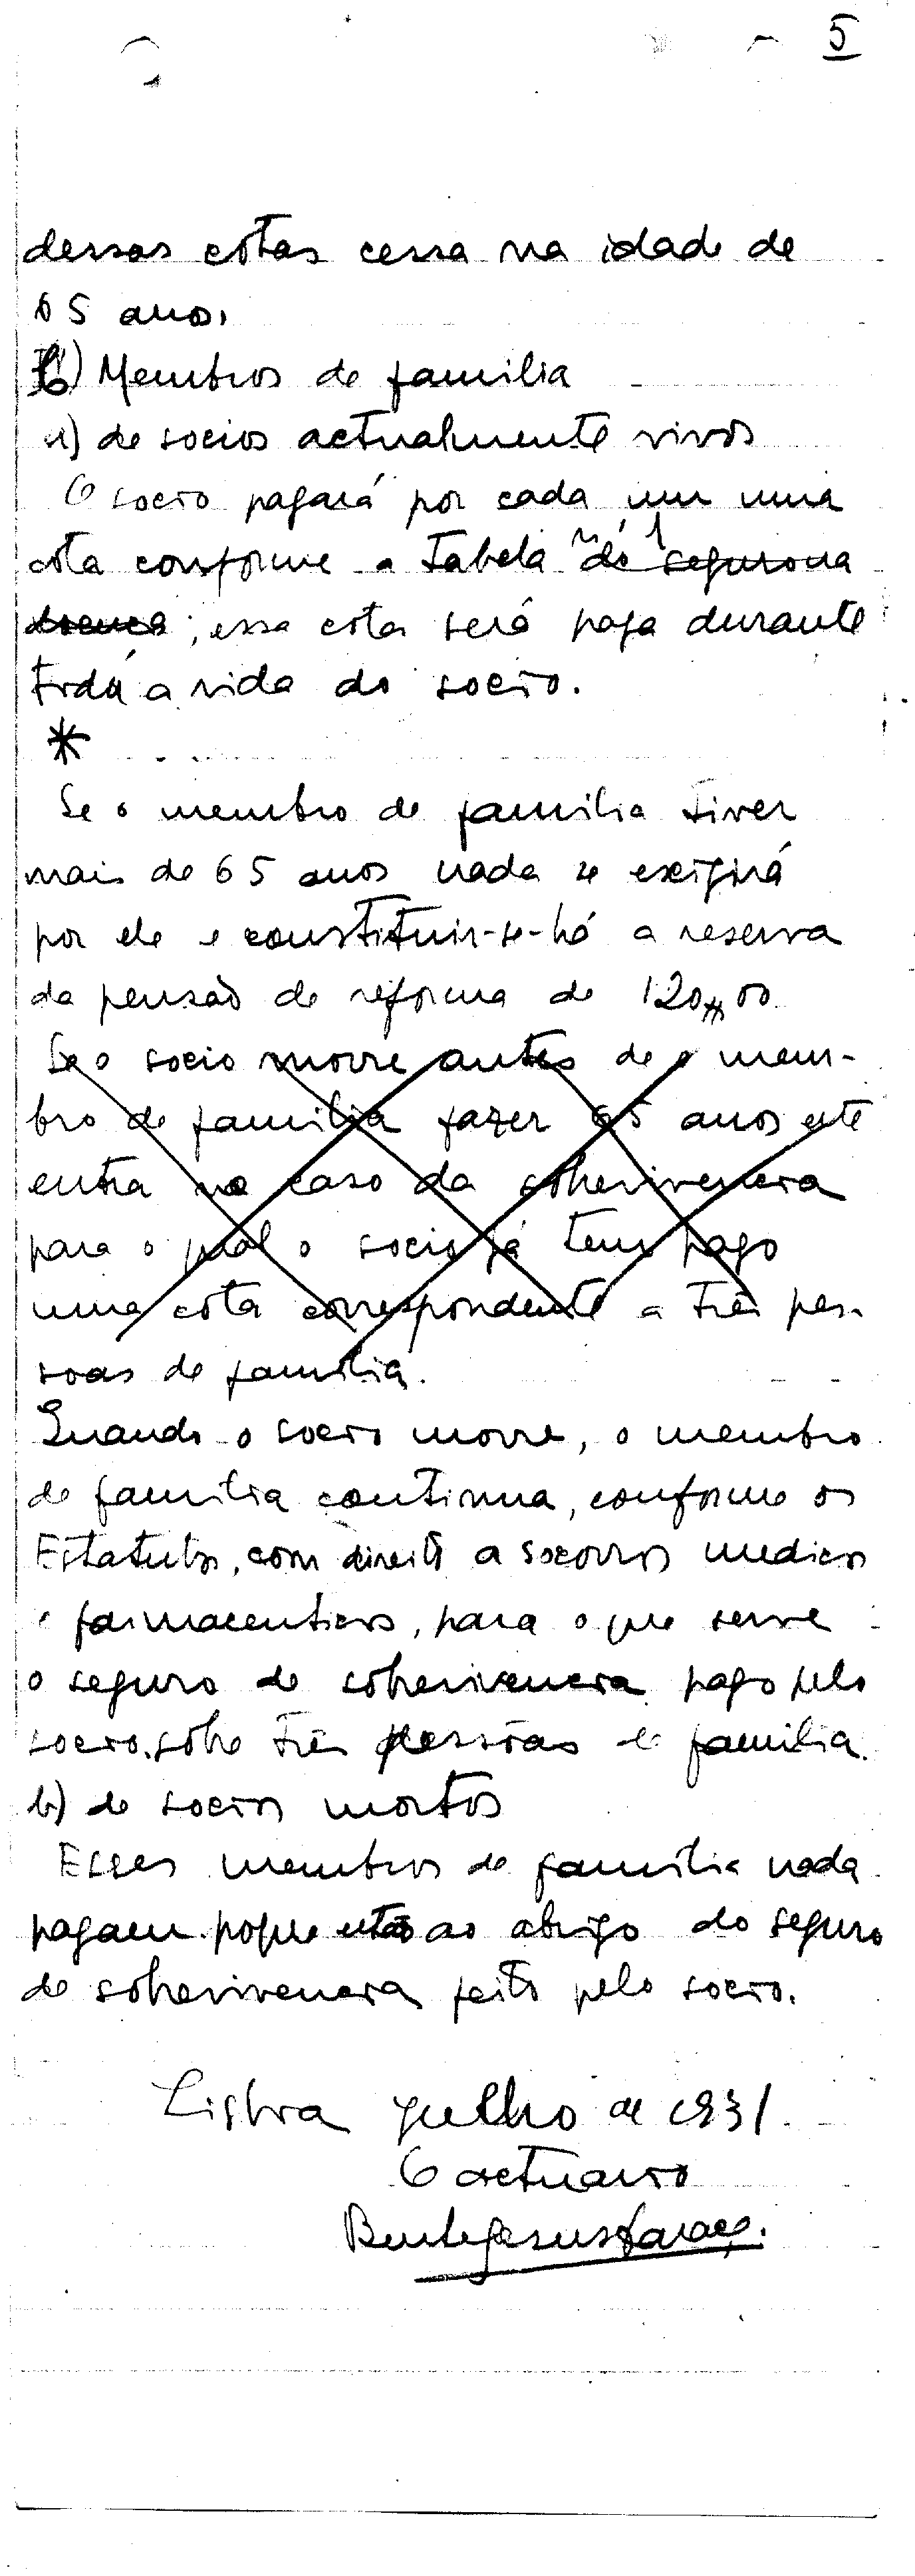 5
dessas cotas cessa na idade de
65 anos.
C) Membros de familia
a) de socios actualmente vivos
O socio pagará por cada um uma
cota conforme a Tabela nº 1 do seguro na
doença; essa cota será paga durante
toda a vida do socio.
*
Se o membro de familia tiver
mais de 65 anos nada se exigirá
por ele e constituir-se-há a reserva
da pensão de reforma de 120$00
Se o socio morre antes de o mem-
bro de familia fazer 65 anos este
entra no caso da sobrevivencia
para o qual o socio já tem pago
uma cota correspondente a três pes-
soas de familia.
Quando o socio morre, o membro
de familia continua, conforme os
Estatutos, com direito a socorros medicos
e farmaceuticos, para o que serve
o seguro de sobrevivencia pago pelo
socio, sobre três pessoas de familia.
b) de socios mortos
Esses membros de familia nada
pagam porque estão ao abrigo do seguro
de sobrevivencia feito pelo socio.
Lisboa julho de 1931
O actuario
Bento Jesus Caraça.